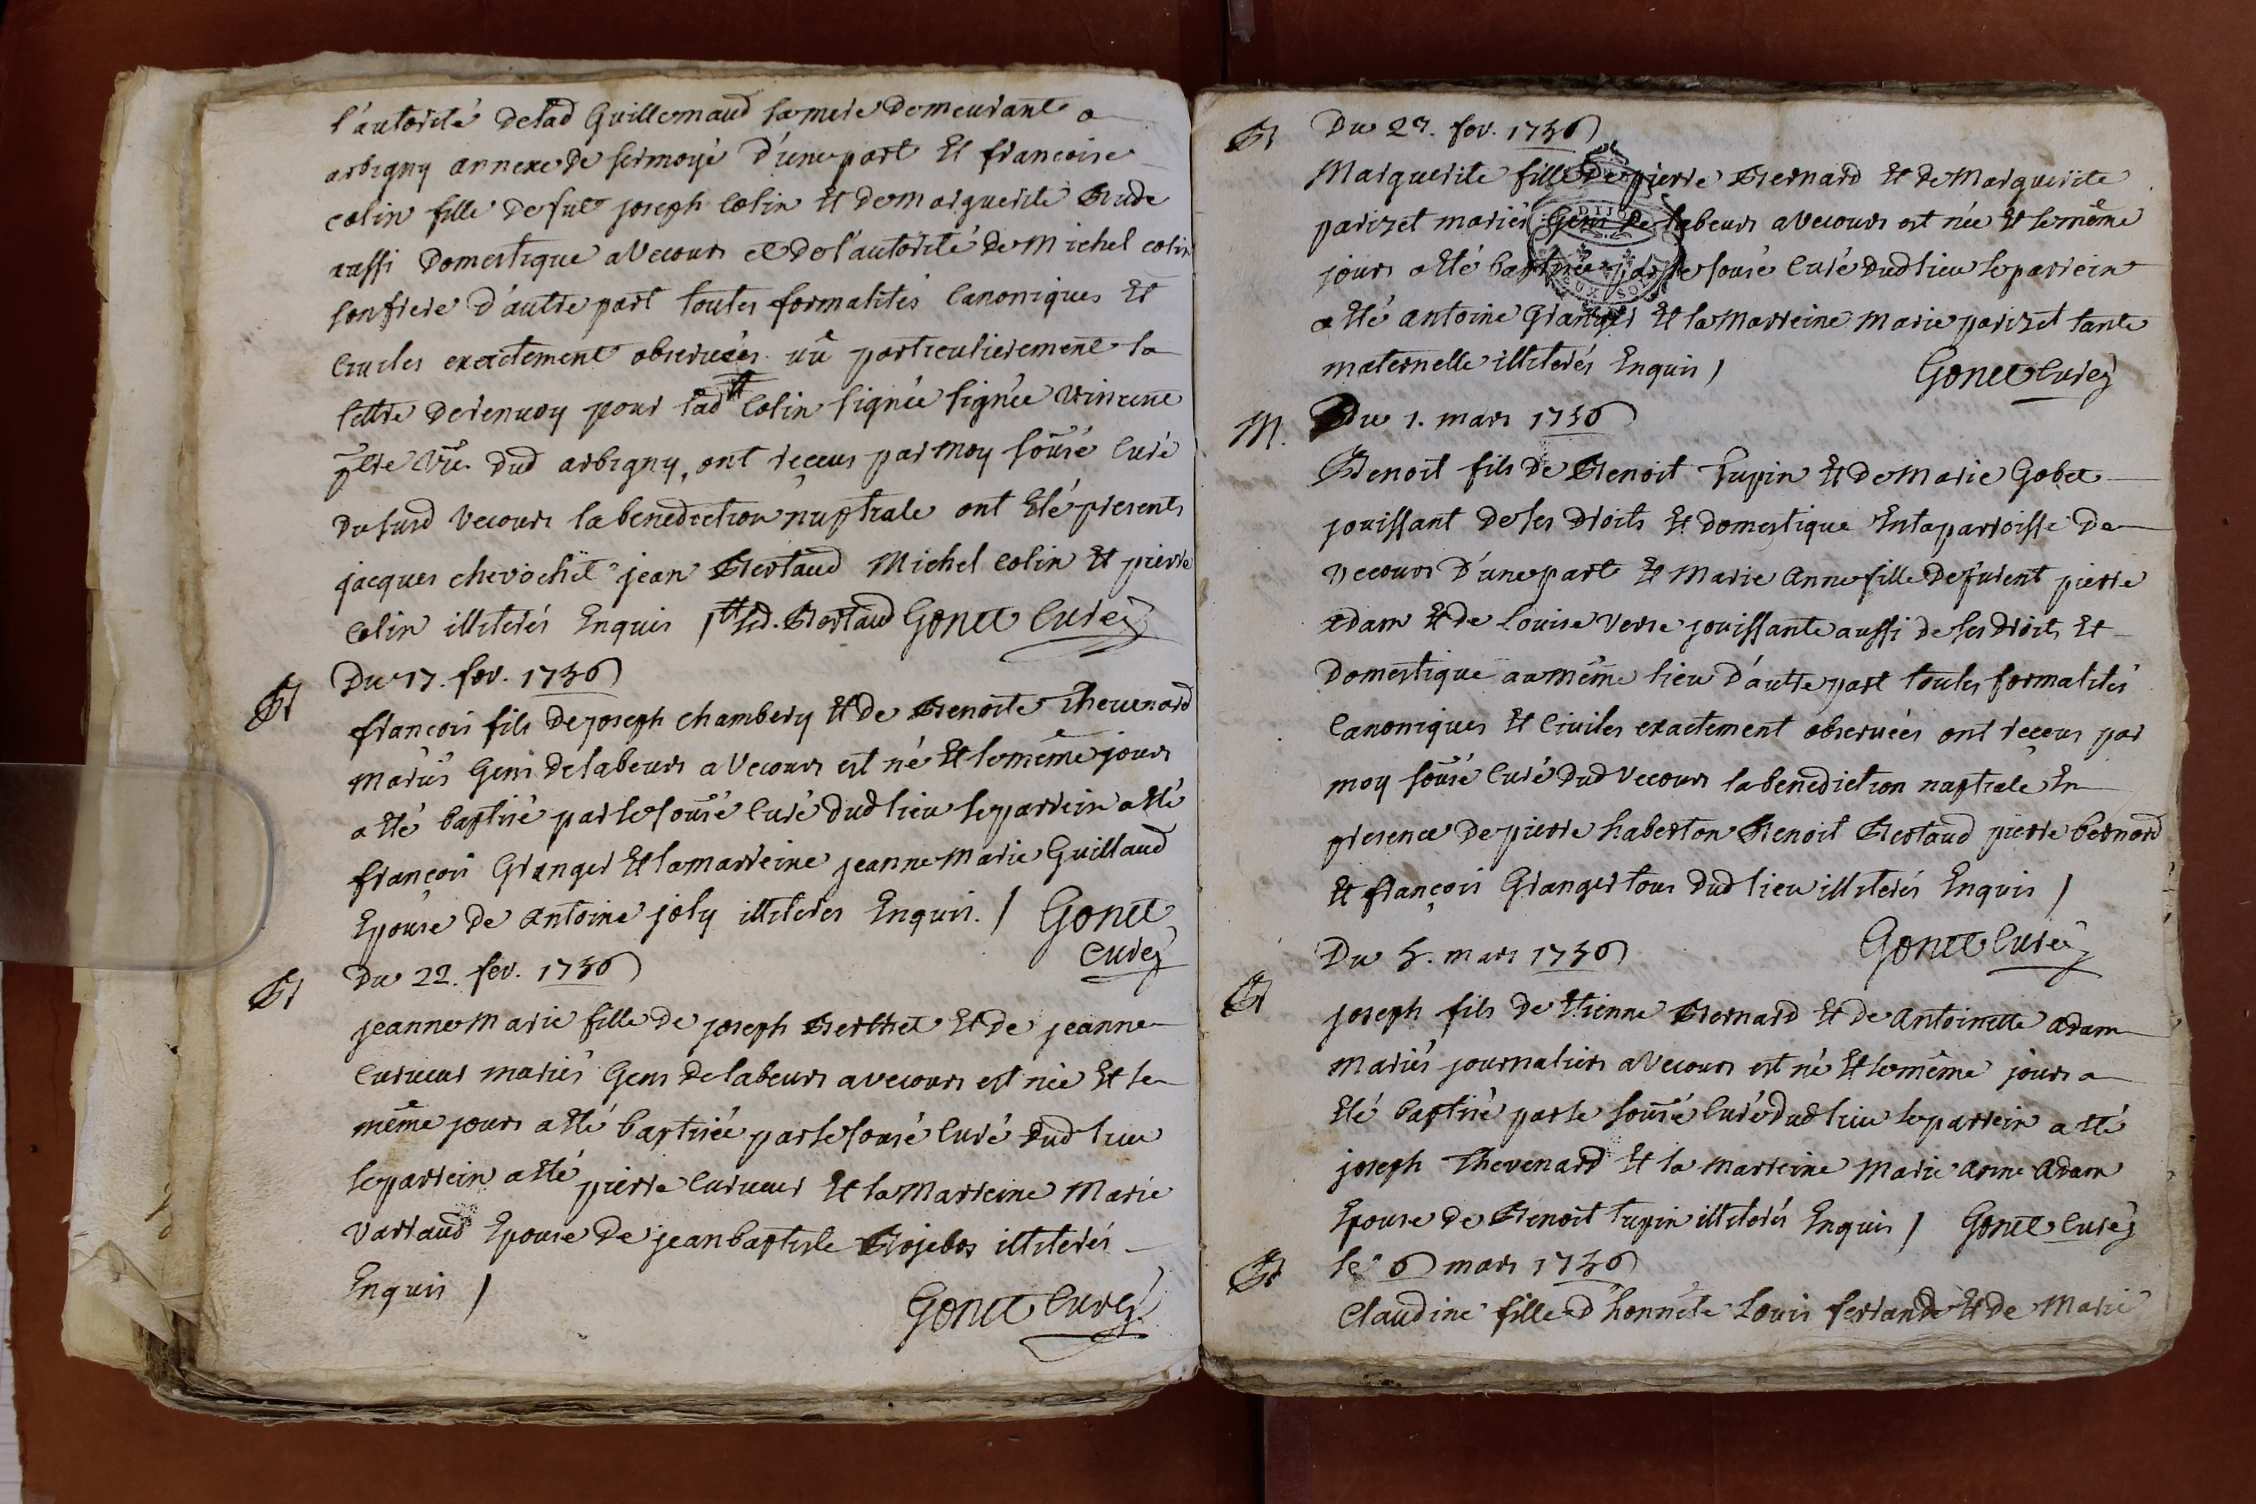 l'autorité de lad Guillemaud sa mere demeurant a
arbigny annexe de sermoyé d'une part Et francoise
colin fille de fut joseph colin Et de marguerite Bude
aussi Domestique a Vecours et de l'autorité de Michel colin
son frere d'autre part toutes formalités Canoniques Et
Civiles exactement observées vû particulierement la
lettre de renvoy pour lad tt Colin signée signée
dud arbigny, ont reçeus par moy sousé Curé
du susd Vecours la benediction nuptiale ont Eté presents
jacques chevochet jean Bertaud Michel colin Et pierre
Colin illiterés Enquis Bertaud Gonet Curé
Du 17. fev. 1736
B
francois fils de joseph chambery Et de Benoite Thevenard
Mariés Gens de labeurs a Vecours est né Et le même jours
a Eté baptisé par le sousé Curé dud lieu le parrein a Eté
francois Granger Et la marreine jeanne Marie Guillaud
Epouse de antoine joly illiteres Enquis. / Gonet
Curé
Du 22. fev. 1736
B
jeanne Marie fille de joseph Berthet Et de jeanne
Curieur mariés Gens de labeurs a vecours est née Et le
même jours a Eté baptisée par le sousé Curé dud lieu
le parrein a Eté pierre Curieur Et la Marreine Marie
Varraud Epouse de jean baptiste illiterés
Enquis /
Gonet Curé
B Du 27. fev. 1736
Marguerite fille de pierre Bernard Et de Marguerite
parizet mariés Gens de labeurs a Vecours est née Et le même
jours a Eté baptisée par le sousé Curé dud lieu le parrein
a Eté antoine Granger Et la Marreine Marie parizet tante
maternelle illiterés Enquis /
Gonet Curé
M. Du 1. mars 1736
Benoit fils de Benoit Tupin Et de Marie Gobet
jouissant de ses Droits Et domestique En la parroisse De
Vecours D'une part Et Marie Anne fille de furent pierre
adam Et de Louise Verne jouissante aussi de ses droits Et
Domestique au même lieu d'autre part toutes formalités
Canoniques Et Civiles exactement observées ont reçeus par
moy sousé Curé Dud Vecours la benediction nuptiale En
presence de pierre haberton Benoit Bertaud pierre bernard
Et françois Granger tous Dud lieu illiterés Enquis /
Gonet Curé
Du 5. mars 1736
B
joseph fils de Etienne Bernard Et de Antoinette adam
Mariés journaliers a Vecours est né Et le même jours a
Eté baptisé par le sousé Curé Dud lieu le parrein a Eté
joseph Thevenard Et la Marreine Marie Anne Adam
Epouse de Benoit Tupin illiterés Enquis / Gonet Curé
B le 6 mars 1736
Claudine fille d'honnête Louis ferrande Et de Marie